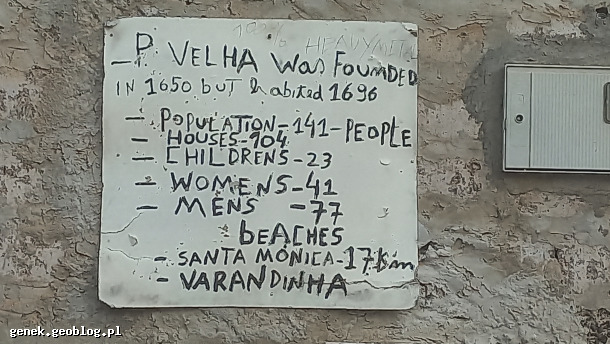 100% HEAVYMETAL
- P. VELHA WAS FOUNDED
IN 1650 bUT hAbited 1696
- POPULATION-141-PEOPLE
- HOUSES-104
- CHILDRENS-23
- WOMENS-41
- MENS -77
bEACHES
- SANTA MÓNICA-17Km
- VARANDINHA
genek.geoblog.pl